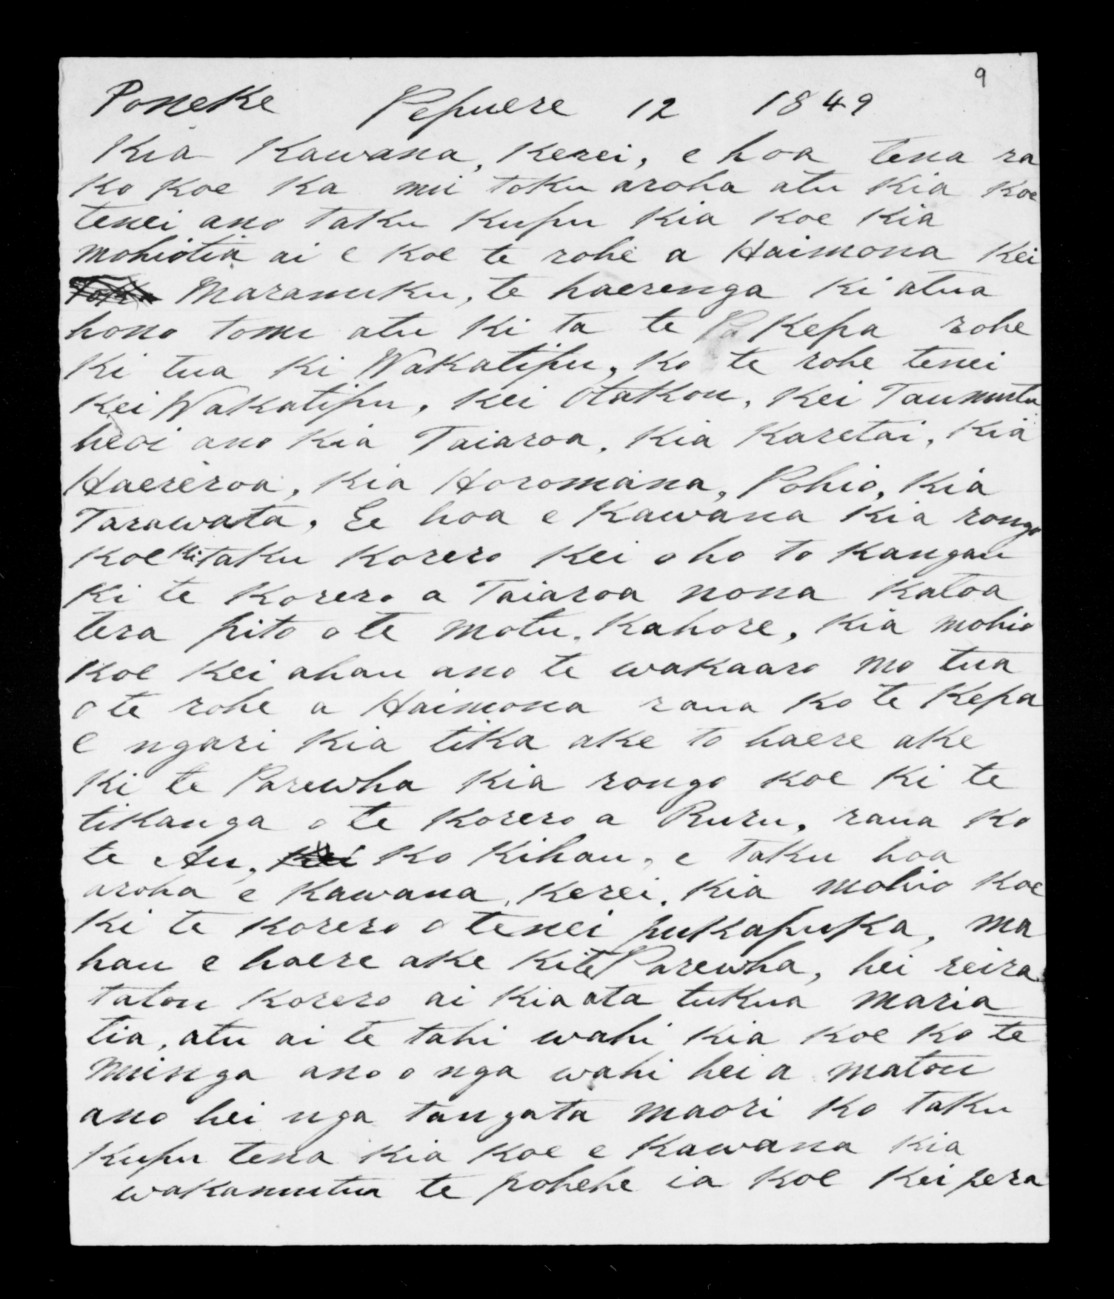 9
Poneke Pepuere 12 1849
Kia Kawana, Kerei, e hoa tena ra
Ko Koe Ka nui toku aroha atu Kia Koe
tenei ano taku Kupu Kia Koe Kia
mohiotia ai e Koe te rohe a Haimona Kei
Maranuku, te haerenga Ki atua
hono tonu atu Ki ta te Kepa rohe
Ki tua Ki Wakatipu, Ko te rohe tenei
Kei Wakatipu, Kei Otakou, Kei Taumutu
heoi ano Kia Taiaroa, Kia Karetai, Kia
Haereroa, Kia Horomana, Pohio, Kia
Tarawata, Ee hoa e Kawana Kia rongo
Koe Ki taku Korero Kei oho to Kangau
Ki te Korero a Taiaroa nona Katoa
tera pito o te motu. Kahore, Kia mohio
Koe Kei ahau ano te wakaaro mo tua
o te rohe a Haimona raua Ko te Kepa
E ngari Kia tika ake to haere ake
Ki te Parewha Kia rongo Koe Ki te
tikanga o te Korero a Ruru, raua Ko
te Au, Ko Kihau, e taku hoa
aroha e Kawana, Kerei, Kia mohio Koe
Ki te Korero o tenei pukapuka, ma
hau e haere ake Kite Parewha, hei reira
tatou Korero ai Kia ata tukua maria
tia, atu ai te tahi wahi Kia Koe Ko te
nuinga ano o nga wahi hei a matou
ano hei nga tangata maori Ko taku
Kupu tena Kia Koe e Kawana Kia
wakamutua te pohehe ia Koe Kei pera